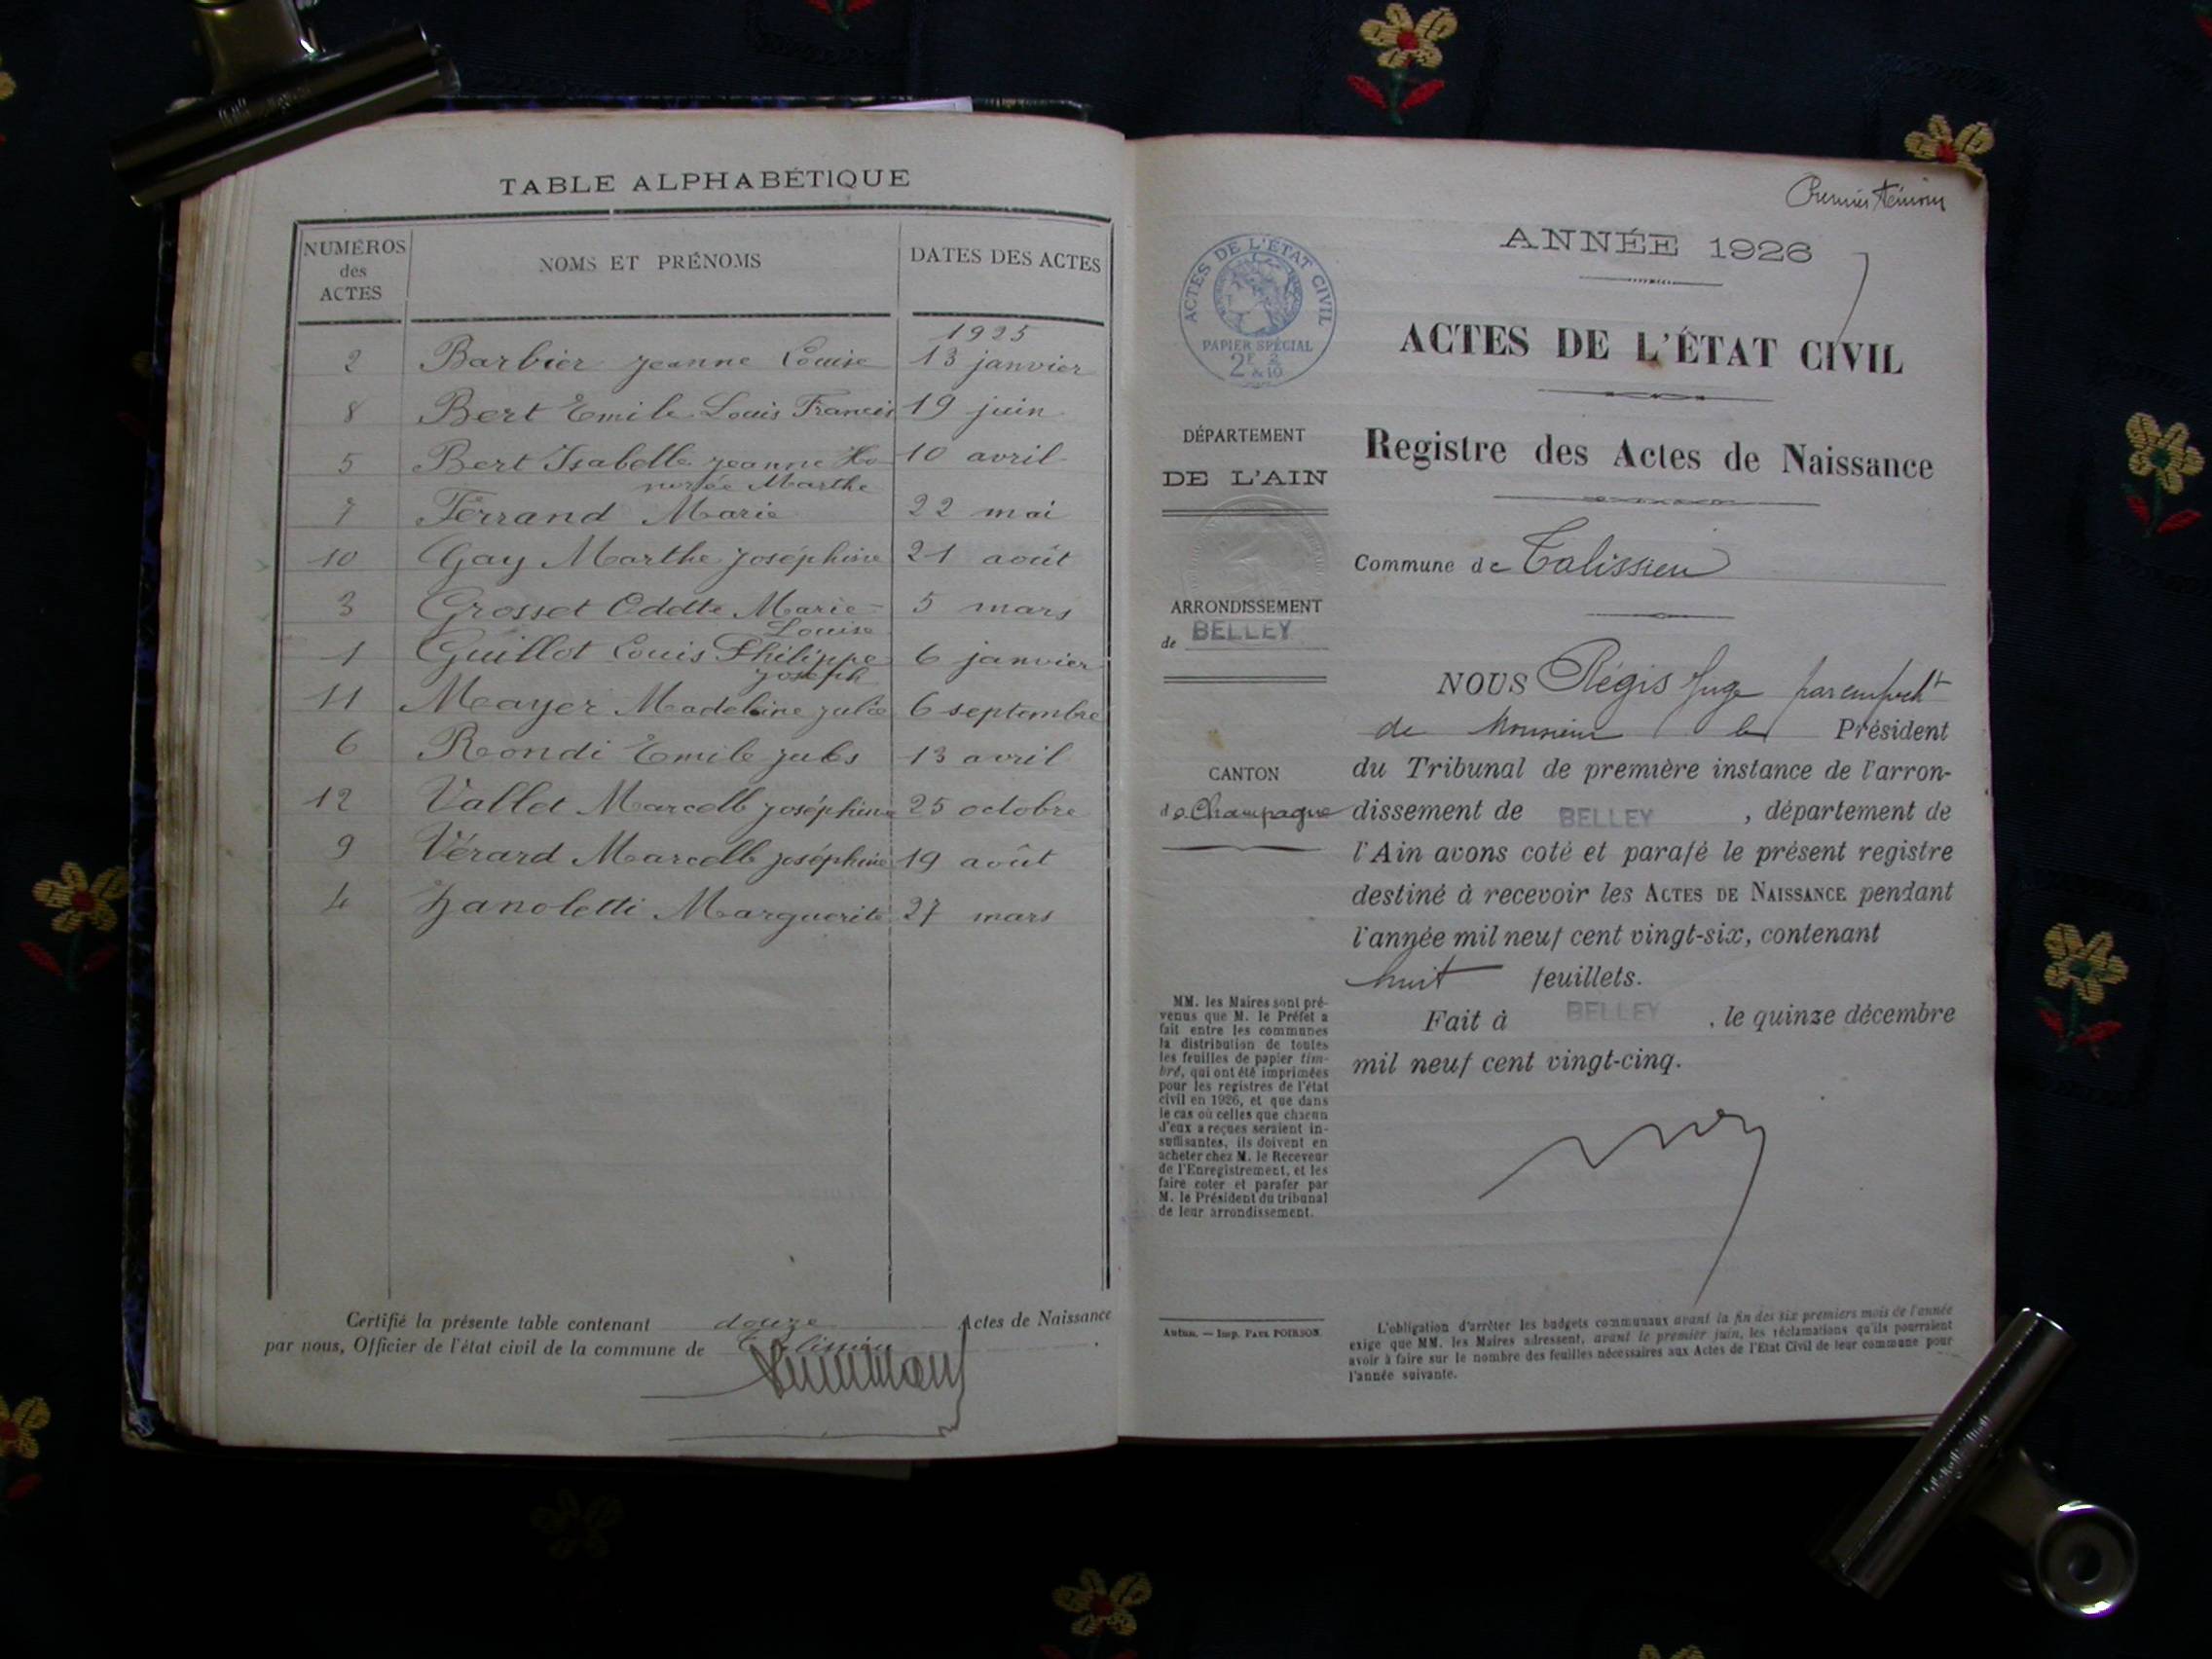 TABLE ALPHABÉTIQUE
NUMÉROS des ACTES NOMS ET PRÉNOMS DATES DES ACTES
1925
2 Barbier Jeanne Louise 13 janvier
8 Bert Emile Louis Francis 19 juin
5 Bert Isabelle Jeanne Ho- 10 avril
norée Marthe
7 Ferrand Marie 22 mai
10 Gay Marthe Joséphine 21 août
3 Grosset Odette Marie- 5 mars
Louise
1 Guillot Louis Philippe 6 janvier
Joseph
11 Mayer Madeleine Julie 6 septembre
6 Rondi Emile Jules 13 avril
12 Vallet Marcelle Joséphine 25 octobre
9 Vérard Marcelle Joséphine 19 août
4 Zanoletti Marguerite 27 mars
Certifié la présente table contenant douze Actes de Naissance
par nous, Officier de l'état civil de la commune de Talissieu
Premier
ANNÉE 1926
ACTES DE L'ÉTAT CIVIL
PAPIER SPÉCIAL
2F 2/10
ACTES DE L'ÉTAT CIVIL
Registre des Actes de Naissance
Commune de Talissieu
DÉPARTEMENT
DE L'AIN
ARRONDISSEMENT
de BELLEY
CANTON
de Champagne
NOUS Régis Juge par empecht
de Monsieur le Président
du Tribunal de première instance de l'arron-
dissement de BELLEY, département de
l'Ain avons coté et parafé le présent registre
destiné à recevoir les ACTES DE NAISSANCE pendant
l'année mil neuf cent vingt-six, contenant
huit feuillets.
Fait à BELLEY, le quinze décembre
mil neuf cent vingt-cinq.
MM. les Maires sont pré-
venus que M. le Préfet a
fait entre les communes
la distribution de toutes
les feuilles de papier tim-
bré, qui ont été imprimées
pour les registres de l'état
civil en 1926, et que dans
le cas où celles que chacun
d'eux a reçues seraient in-
suffisantes, ils doivent en
acheter chez M. le Receveur
de l'Enregistrement, et les
faire coter et parafer par
M. le Président du tribunal
de leur arrondissement.
Autun. — Imp. PAUL POIRSON.
L'obligation d'arrêter les budgets communaux avant la fin des six premiers mois de l'année
exige que MM. les Maires adressent, avant le premier juin, les réclamations qu'ils pourraient
avoir à faire sur le nombre des feuilles nécessaires aux Actes de l'Etat Civil de leur commune pour
l'année suivante.